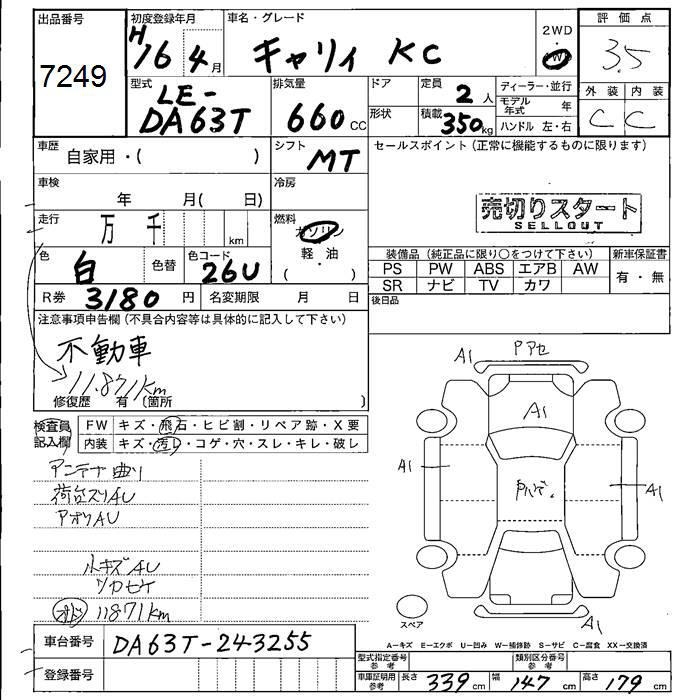 出品番号
7249
初度登録年月
H16 4月
車名・グレード
キャリィ KC
2WD
・
4WD
評価点
3.5
外装 内装
C C
型式
LE-
DA63T
排気量
660 CC
ドア
形状
定員 2 人
積載 350 kg
ディーラー・並行
モデル年式 年
ハンドル 左・右
車歴
自家用・( )
シフト
MT
セールスポイント (正常に機能するものに限ります)
車検
年 月( 日)
冷房
売切りスタート
SELLOUT
走行
万 千 km
燃料
ガソリン
軽・油
( )
色
白
色替
色コード
26U
装備品 (純正品に限り○をつけて下さい)
新車保証書
PS PW ABS エアB AW
有・無
SR ナビ TV カワ
R券 3180 円
名変期限 月 日
後日品
注意事項申告欄 (不具合内容等は具体的に記入して下さい)
不動車
11.871km
修復歴 有 (箇所 )
検査員記入欄
FW キズ・飛石・ヒビ割・リペア跡・X要
内装 キズ・汚レ・コゲ・穴・スレ・キレ・破レ
アンテナ曲り
荷台スリAU
アオリAU
小キズAU
ツヤヒケ
オド 11871km
A1
Pアセ
A1
A1
A1
A1
スペア
A-キズ E-エクボ U-凹み W-補修跡 S-サビ C-腐食 XX-交換済
車台番号
DA63T-243255
登録番号
型式指定番号
参考
類別区分番号
参考
車庫証明用
参考
長さ 339 cm 幅 147 cm 高さ 179 cm